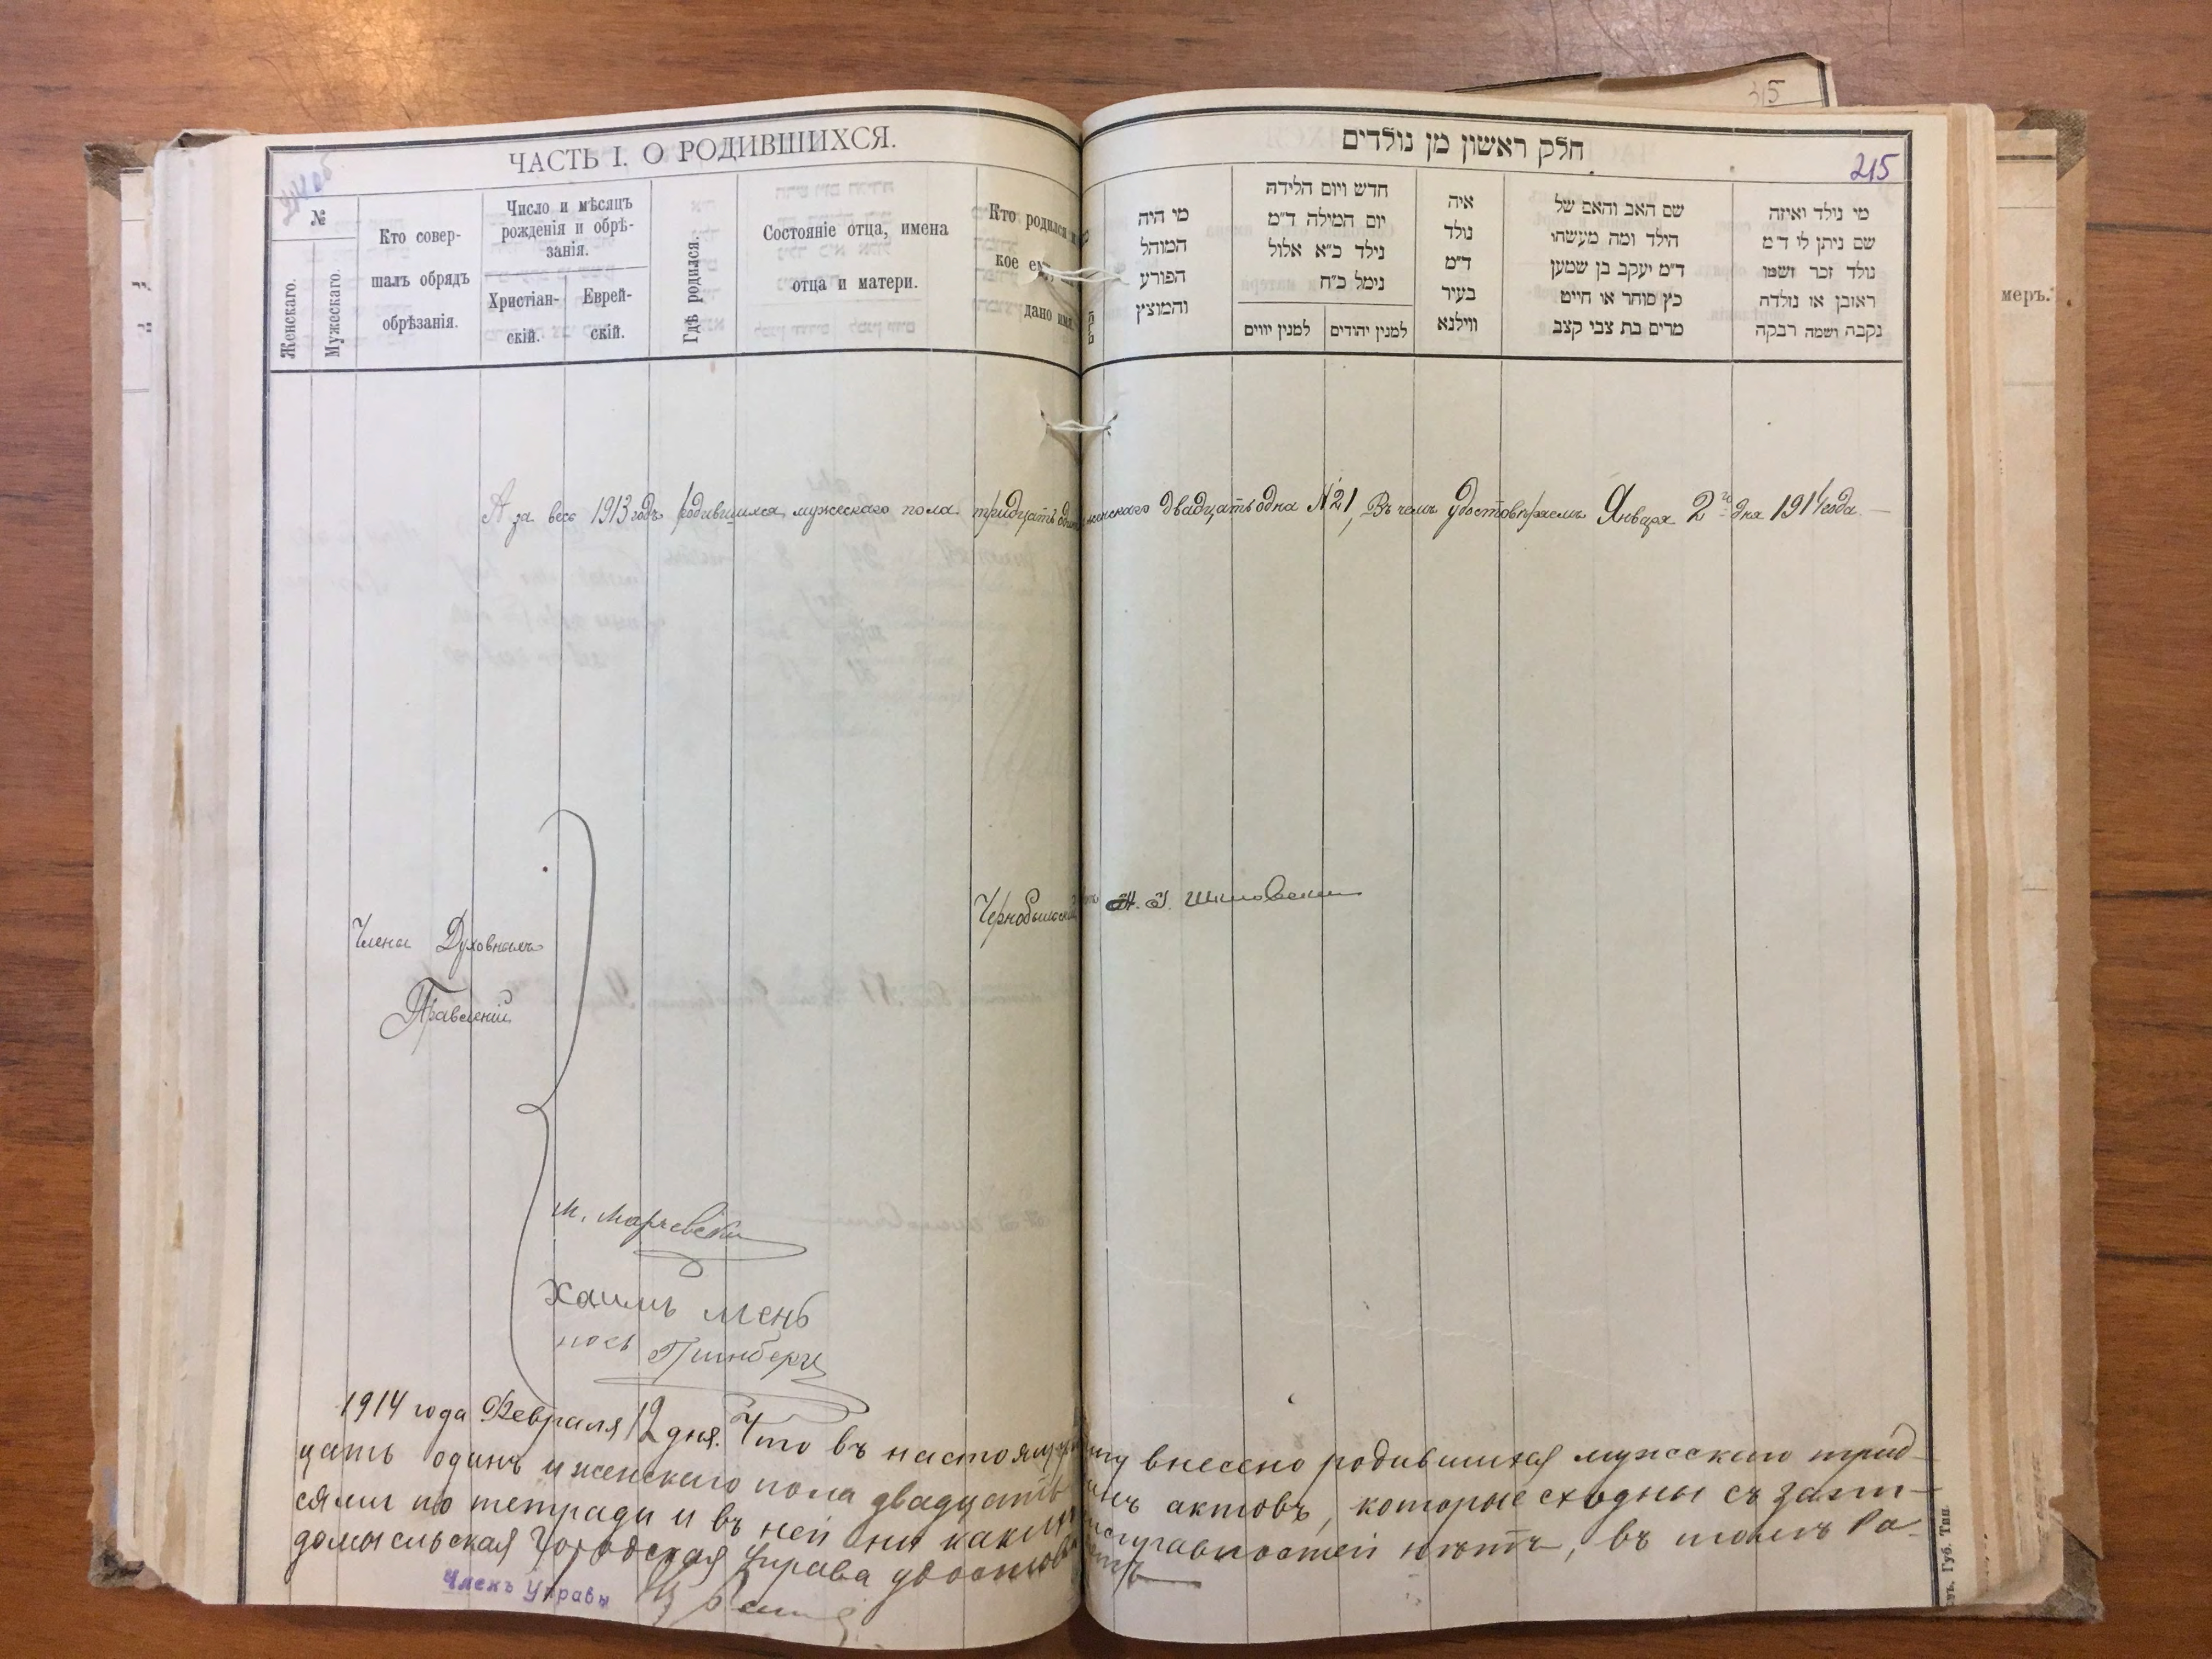 315
ЧАСТЬ I. О РОДИВШИХСЯ.
№
Женскаго.
Мужескаго.
Кто совер-
шалъ обрядъ
обрѣзанія.
Число и мѣсяцъ
рожденія и обрѣ-
занія.
Христіан-
скій.
Еврей-
скій.
Гдѣ родился.
Состояніе отца, имена
отца и матери.
Кто родился
кое ему
дано имя
חלק ראשון מן נולדים
215
מי היה
המוהל
הפורע
והמוצץ
חדש ויום הלידה
יום המילה ד״מ
נילד כ״א אלול
נימל כ״ח
למנין יווים
למנין יהודים
איה
נולד
ד״מ
בעיר
ווילנא
שם האב והאם של
הילד ומה מעשהו
ד״מ יעקב בן שמען
כץ סוחר או חייט
מרים בת צבי קצב
מי נולד ואיזה
שם ניתן לו ד״מ
נולד זכר ושמו
ראובן או נולדה
נקבה ושמה רבקה
меръ.
А за весь 1913 годъ родившихся мужескаго пола тридцать одинъ женскаго двадцать одна №21, Въ чемъ удостовѣряемъ Января 2го дня 1914 года
Члены Духовнаго
Правленія
М. Шкловскій
М. Марчевскій
Хаимъ Мень
Гринбергъ
1914 года Февраля 12 дня. Что въ настоящую внесено родившихся мужескаго трид-
цать одинъ и женскаго пола двадцать актовъ, которые сходны съ запи-
сями по тетради и въ ней ни какихъ неисправностей нѣтъ, въ томъ Ра-
домысльская Городская Управа удостовѣряетъ
Членъ Управы
Губ. Тип.